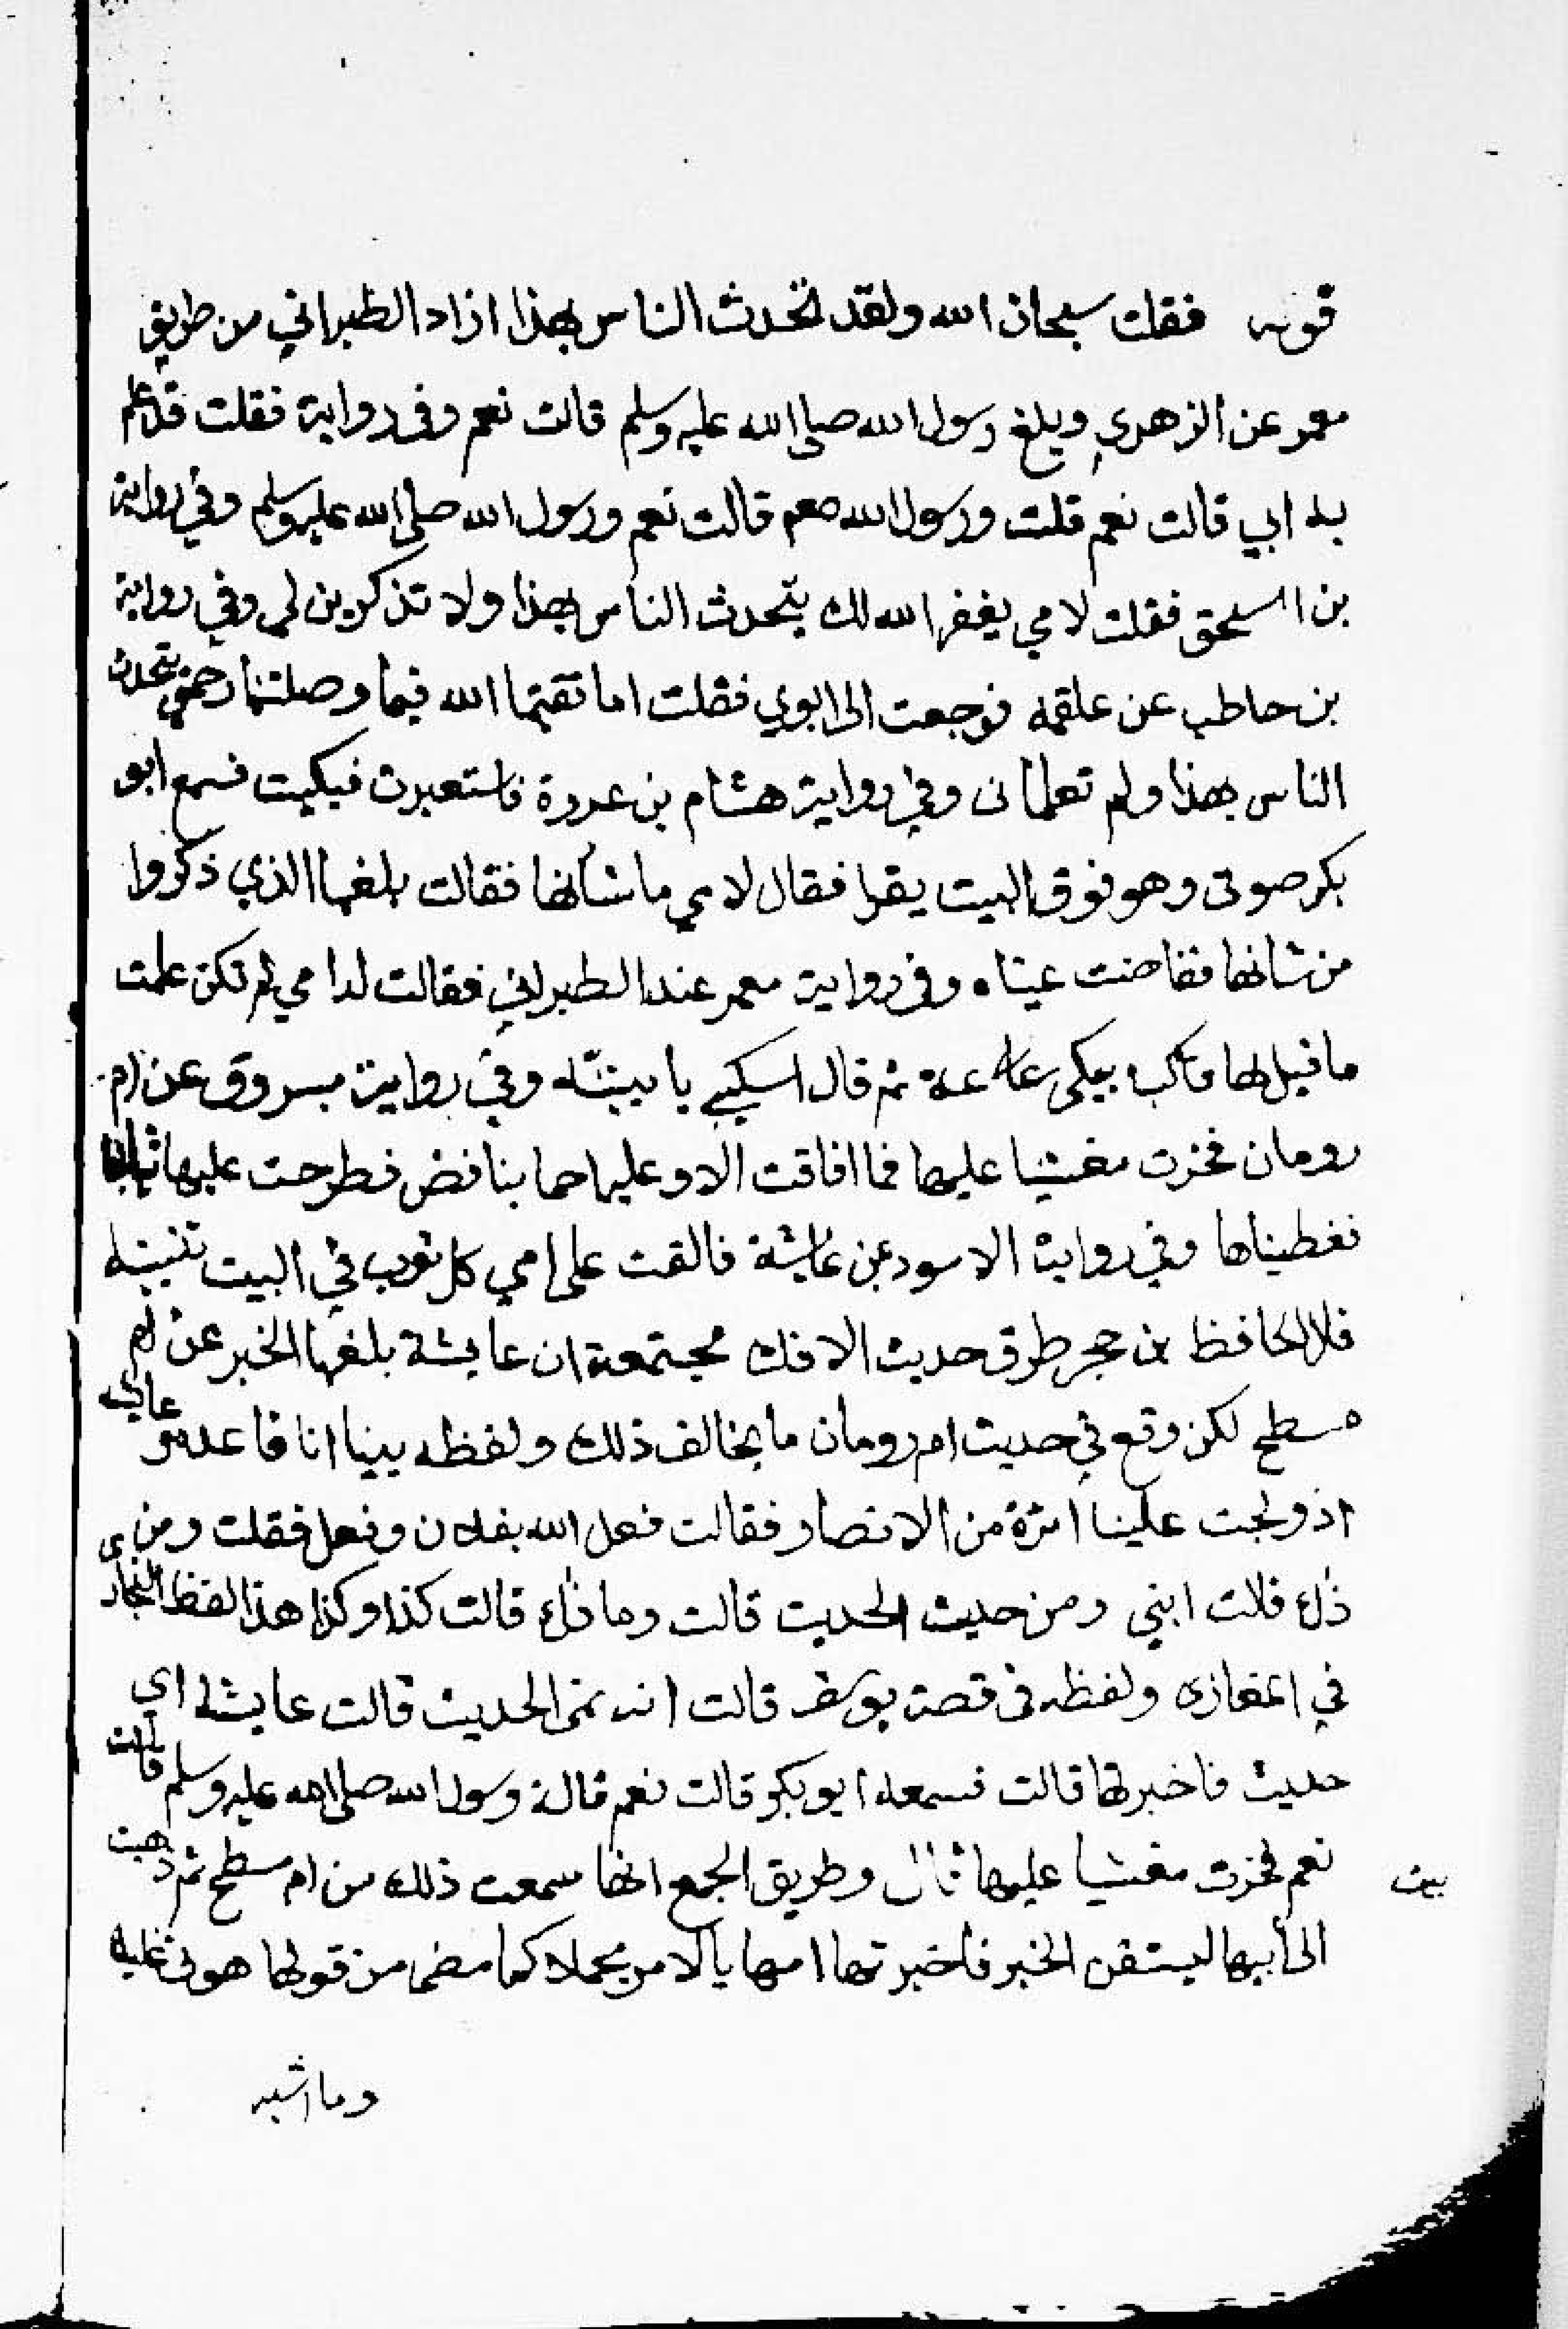 قوله فقلت سبحان الله ولقد تحدث الناس بهذا ازاد الطبراني من طريق
معمر عن الزهري وبلغ رسول الله صلى الله عليه وسلم قالت نعم وفى رواية فقلت قد علم
به ابي قالت نعم قلت ورسول الله صعم قالت نعم ورسول الله صلى الله عليه وسلم وفي رواية
بن اسحق فقلت لامي يغفر الله لك يتحدث الناس بهذا ولا تذكرين لي وفي رواية
بن حاطب عن علقمه فرجعت الى ابوي فقلت اما تقيتما الله فيما وصلتما رحمي يتحدث
الناس بهذا ولم تعلمانى وفي رواية هشام بن عروة فاستعبرت فبكيت فسمع ابو
بكر صوتى وهو فوق البيت يقرا فقال لامي ما شأنها فقالت بلغها الذي ذكروا
من شانها ففاضت عيناه وفى رواية معمر عند الطبراني فقالت له امي لم تكن علمت
ما قيل لها فاكب يبكى ساعة ثم قال اسكتي يا بنية وفي رواية مسروق عن ام
رومان فخرت مغشيا عليها فما افاقت الا وعليها حما بنافض فطرحت عليها ثيابها
فغطيناها وفي رواية الاسود عن عايشة فالقت على امي كل ثوب في البيت تنبيه
قال الحافظ بن حجر طرق حديث الافك مجتمعة ان عايشة بلغها الخبر عن ام
مسطح لكن وقع في حديث ام رومان ما يخالف ذلك ولفظه بينا انا قاعده وعايشه
اذ ولجت علينا امرة من الانصار فقالت فعل الله بفلان وفعل فقلت ومن
ذلك قالت ابني ومن حديث الحديث قالت وما ذلك قالت كذا وكذا هذا لفظ البخارى
في المغازى ولفظه فى قصة يوسف قالت انه نمى الحديث قالت عايشه اي
حديث فاخبرتها قالت فسمعه ابو بكر قالت نعم قالت ورسول الله صلى الله عليه وسلم قالت
نعم فخرت مغشيا عليها قال وطريق الجمع انها سمعت ذلك من ام مسطح ثم ذهبت
بيت
الى أبيها ليستقن الخبر فاخبرتها امها بالامر مجملا كما مضى من قولها هونى عليك
وما اشبه